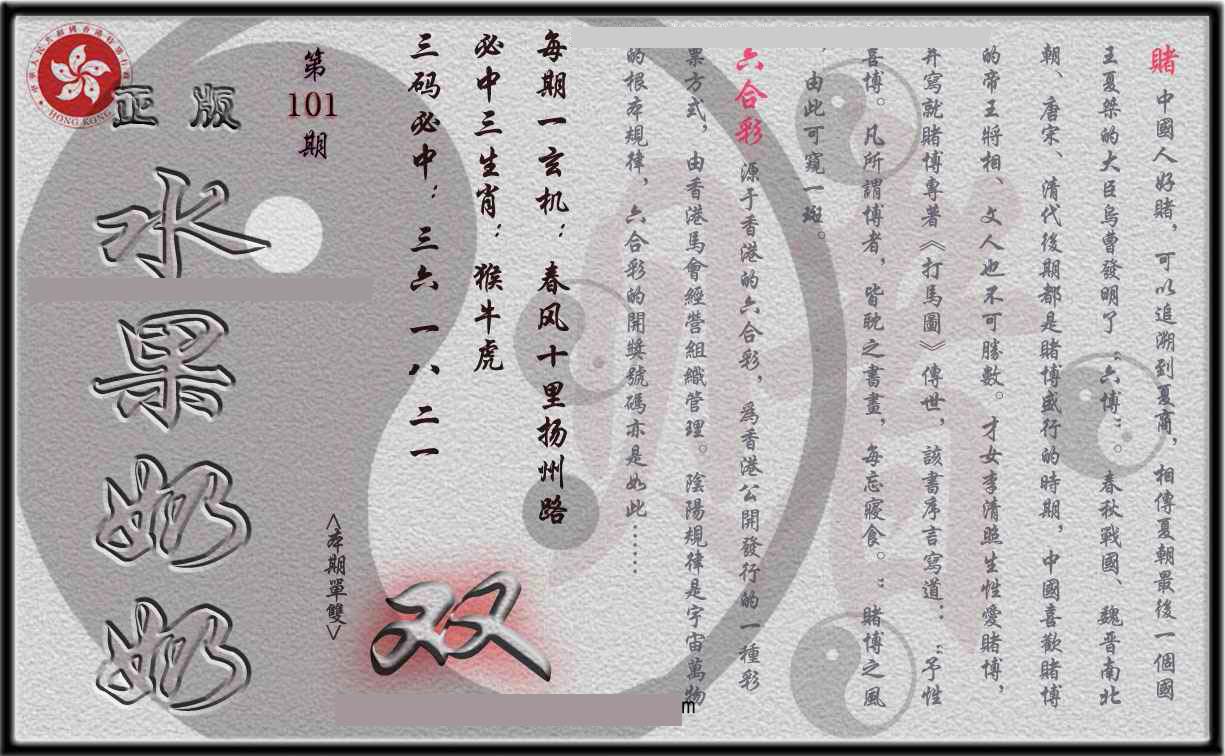 賭 中國人好賭，可以追溯到夏商，相傳夏朝最後一個國
王夏桀的大臣烏曹發明了“六博”。春秋戰國、魏晉南北
朝、唐宋、清代後期都是賭博盛行的時期，中國喜歡賭博
的帝王將相、文人也不可勝數。才女李清照生性愛賭博，
并寫就賭博專著《打馬圖》傳世，該書序言寫道：“予性
喜博。凡所謂博者，皆耽之書畫，每忘寢食。”賭博之風
，由此可窺一斑。
六合彩 源于香港的六合彩，為香港公開發行的一種彩
票方式，由香港馬會經營組織管理。陰陽規律是宇宙萬物
的根本規律，六合彩的開獎號碼亦是如此……
每期一玄机：春风十里扬州路
必中三生肖：猴牛虎
三码必中：三六 一八 二一
<本期單雙>
双
第
101
期
正版
水果奶奶
HONG KONG
m